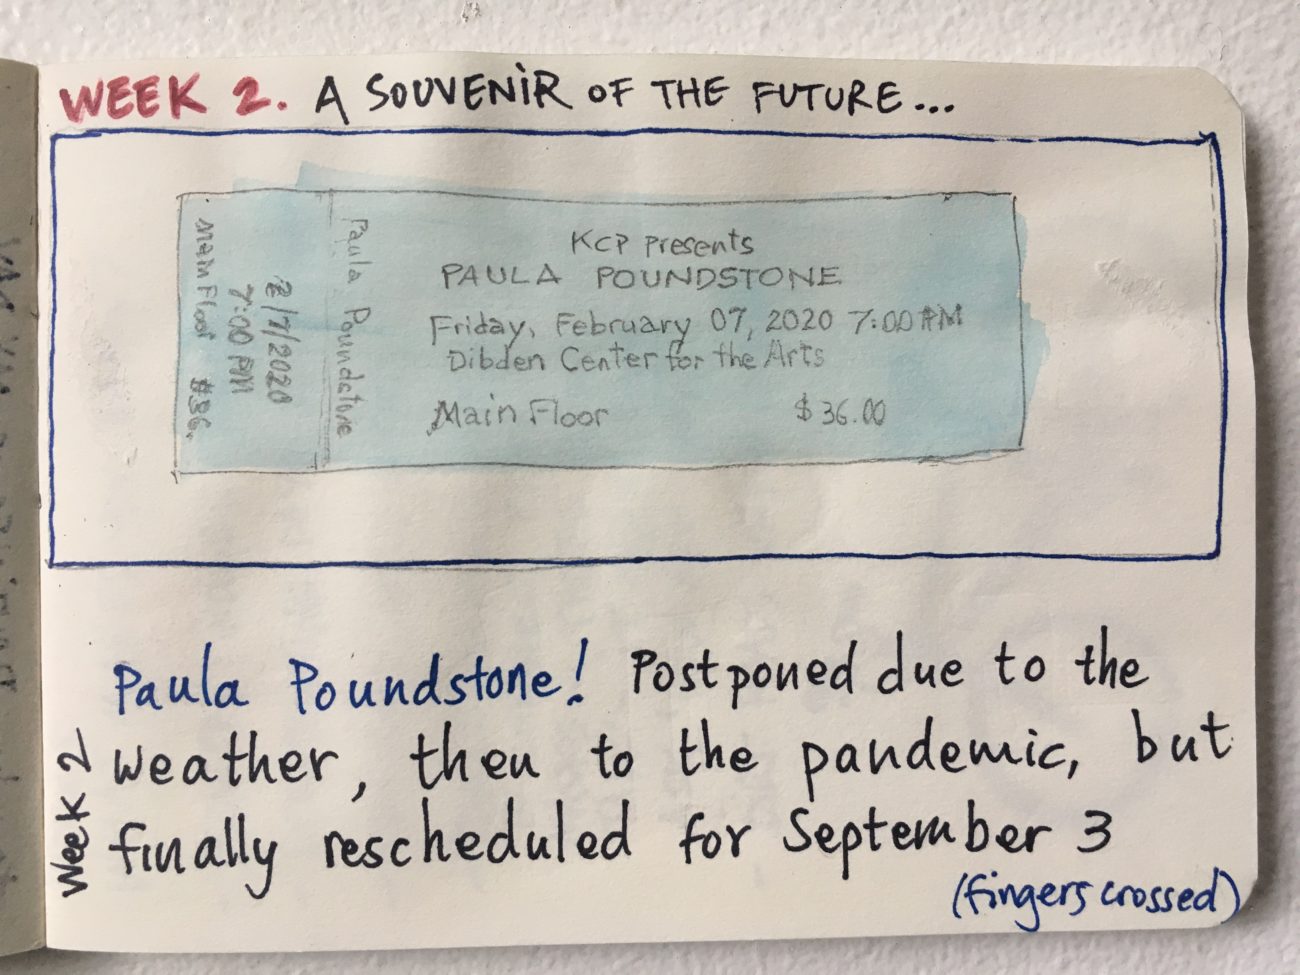 WEEK 2. A SOUVENIR OF THE FUTURE...
KCP Presents
PAULA POUNDSTONE
Friday, February 07, 2020 7:00 PM
Dibden Center for the Arts
Main Floor $36.00
Paula Poundstone
2/7/2020
7:00 PM
Main Floor $36.
Paula Poundstone! Postponed due to the
weather, then to the pandemic, but
finally rescheduled for September 3
(fingers crossed)
Week 2